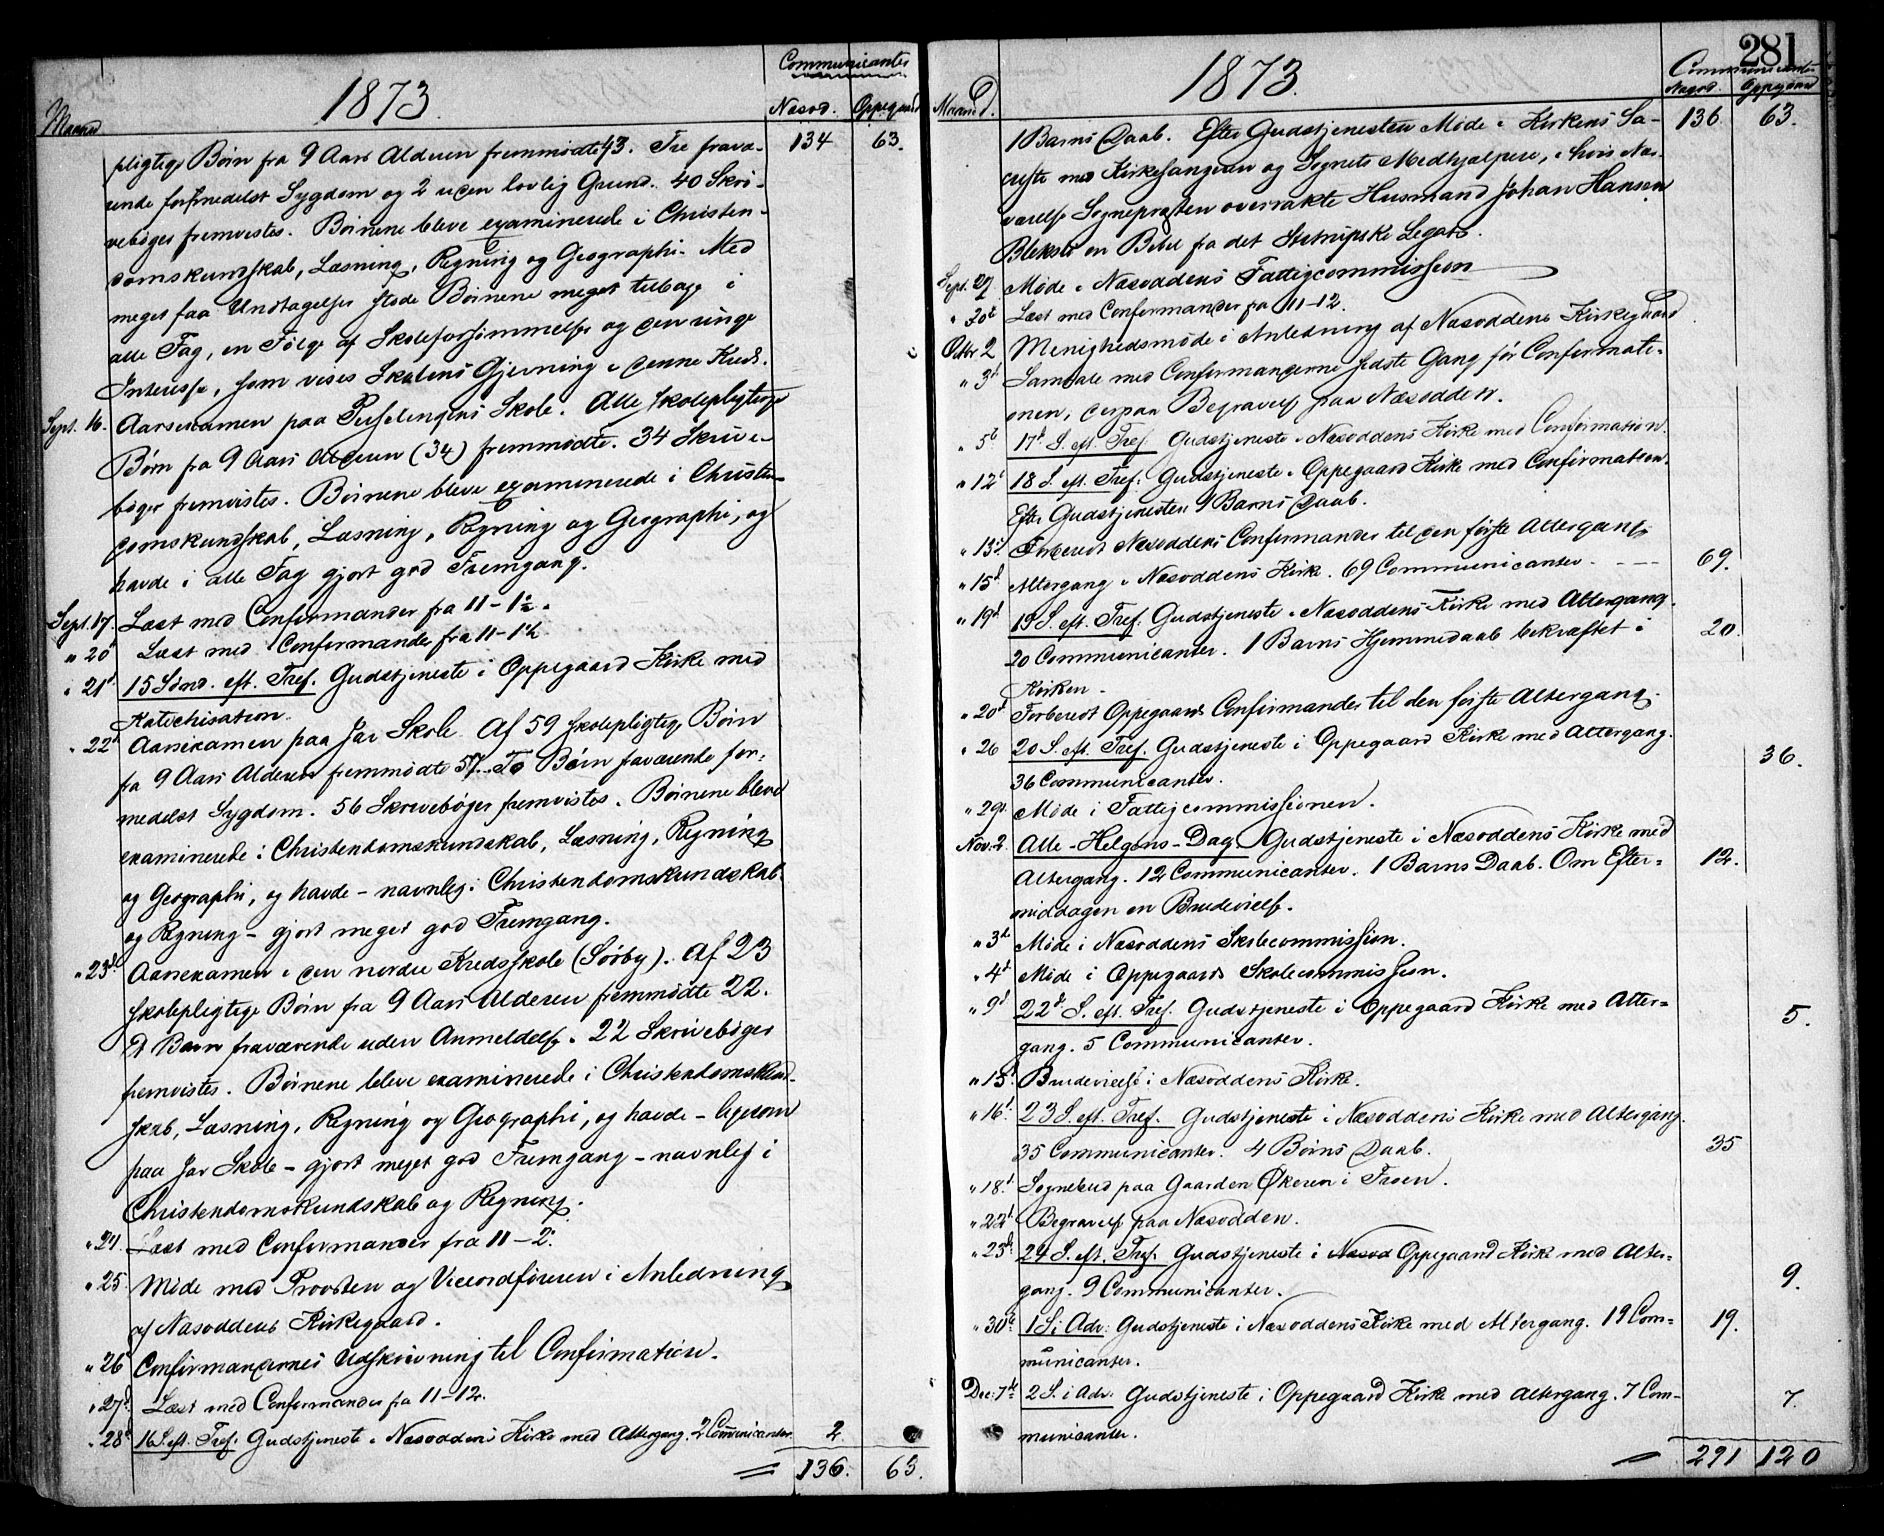 Communicanter
1873.
Maaned
Næsod. Oppegaard
pligtige Børn fra 9 Aars Alderen fremmødte 43. Tre fravæ- 134 63.
rende formedelst Sygdom og 2 uden lovlig Grund. 40 Skri-
vebøger fremvistes. Børnene bleve examinerede i Christen-
domskundskab, Læsning, Regning og Geographi. Med
meget faa Undtagelser stode Børnene meget tilbage i
alle Fag, en Følge af Skoleforsømmelse og den ringe
Interesse, som vises Skolens Gjerning i denne Kreds.
Sept. 16. Aarsexamen paa Skole. Alle skolepligtige
Børn fra 9 Aars Alderen (34) fremmødte. 34 Skrive-
bøger fremvistes. Børnene bleve examinerede i Christen-
domskundskab, Læsning, Regning og Geographi, og
havde i alle Fag gjort god Fremgang.
Sept. 17. Læst med Confirmander fra 11-1½.
" 20 Læst med Confirmander fra 11-1½
" 21d 15 Sønd. eft. Tref. Gudstjeneste i Oppegaard Kirke med
Katechisation.
" 22d Aarsexamen paa Jar Skole. Af 59 skolepligtige Børn
fra 9 Aars Alderen fremmødte 57. To Børn fraværende for-
medelst Sygdom. 56 Skrivebøger fremvistes. Børnene bleve
examinerede i Christendomskundskab, Læsning, Regning
og Geographi, og havde - navnlig i Christendomskundskab
og Regning - gjort meget god Fremgang.
" 23d Aarsexamen i den nordre Kredsskole (Sørby). Af 23
skolepligtige Børn fra 9 Aars Alderen fremmødte 22.
Barn fraværende uden Anmeldelse. 22 Skrivebøger
fremvistes. Børnene bleve examinerede i Christendomskund-
skab, Læsning, Regning og Geographi, og havde - ligesom
paa Jar Skole - gjort meget god Fremgang - navnlig i
Christendomskundskab og Regning.
" 24. Læst med Confirmander fra 11-2.
" 25 Møde med Provsten og Viceordføreren i Anledning
af Næsoddens Kirkegaard.
" 26 Confirmandernes Udskrivning til Confirmation.
" 27d Læst med Confirmander fra 11-12.
" 28d 16 S. eft. Tref. Gudstjeneste i Næsoddens Kirke med Altergang. 2 Communicanter. 2
136. 63.
281
1873.
Communicanter
Maaned.
Næsod. Oppegaard
1 Barns Daab. Efter Gudstjenesten Møde i Kirkens Sa- 136. 63.
cristi med Kirkesangeren og Sognets Medhjælpere, i hvis Nær-
værelse Sognepræsten overrakte Husmand Johan Hansen
en Bibel fra det Legat.
Sept. 29 Møde i Næsoddens Fattigcommission
" 30t Læst med Confirmander fra 11-12.
Octbr 2 Menighedsmøde i Anledning af Næsoddens Kirkegaard
" 3d Samtale med Confirmanderne sidste Gang før Confirmati-
onen, derpaa Begravelse paa Næsodden.
" 5t 17d S. eft. Tref. Gudstjeneste i Næsoddens Kirke med Confirmation.
" 12t 18 S. eft. Tref. Gudstjeneste i Oppegaard Kirke med Confirmation.
Efter Gudstjenesten 1 Barns Daab.
" 13d Forberedt Næsoddens Confirmander til den første Altergang
" 15d Altergang i Næsoddens Kirke. 69 Communicanter. 69.
" 19d 19 S. eft. Tref. Gudstjeneste i Næsoddens Kirke med Altergang.
20 Communicanter. 1 Barns Hjemmedaab bekræftet i 20.
Kirken.
" 20d Forberedt Oppegaards Confirmander til den første Altergang.
" 26 20 S. eft. Tref. Gudstjeneste i Oppegaard Kirke med Altergang.
36 Communicanter. 36.
" 29d Møde i Fattigcommissionen.
Nov. 2. Alle-Helgens-Dag Gudstjeneste i Næsoddens Kirke med
Altergang. 12 Communicanter. 1 Barns Daab. Om Efter- 12.
middagen en Brudevielse.
" 3d Møde i Næsoddens Skolecommission.
" 4d Møde i Oppegaards Skolecommission.
" 9d 22d S. eft. Tref. Gudstjeneste i Oppegaard Kirke med Alter-
gang. 5 Communicanter. 5.
" 15d Brudevielse i Næsoddens Kirke.
" 16d 23 S. eft. Tref. Gudstjeneste i Næsoddens Kirke med Altergang.
35 Communicanter. 4 Børns Daab. 35
" 18d Sognebud paa Gaarden Økeren i Froen.
" 22d Begravelse paa Næsodden.
" 23d 24 S. eft. Tref. Gudstjeneste i Næsod Oppegaard Kirke med Alter-
gang. 9 Communicanter. 9.
" 30d 1 S. i Adv. Gudstjeneste i Næsoddens Kirke med Altergang. 19 Com- 19.
municanter.
Dec. 7de 2 S. i Adv. Gudstjeneste i Oppegaard Kirke med Altergang. 7 Com- 7.
municanter.
291 120